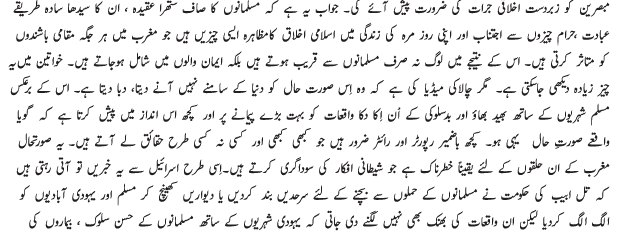 مبصرین کو زبردست اخلاقی جرات کی ضرورت پیش آئے گی۔ جواب یہ ہے کہ مسلمانوں کا صاف ستھرا عقیدہ ، ان کا سیدھا سادہ طریقے
عبادت جرام چیزوں سے اجتناب اور اپنی روز مرہ کی زندگی میں اسلامی اخلاق کامظاہرہ ایسی چیزیں ہیں جو مغرب میں ہر جگہ مقامی باشندوں
کو متاثر کرتی ہیں۔ اس کے نتیجے میں لوگ نہ صرف مسلمانوں سے قریب ہوتے ہیں بلکہ ایمان والوں میں شامل ہوجاتے ہیں۔ خواتین میں یہ
چیز زیادہ دیکھی جاسکتی ہے۔ مگر چالاکی میڈیا کی ہے کہ وہ اِس صورت حال کو دنیا کے سامنے نہیں آنے دیتا، دبا دیتا ہے۔ اس کے برعکس
مسلم شہریوں کے ساتھ بھید بھاؤ اور بدسلوکی کے اُن اِکا دکا واقعات کو بہت بڑے پیمانے پر اور کچھ اس انداز میں پیش کرتا ہے کہ گویا
واقعے صورتِ حال یہی ہو۔ کچھ باضمیر رپورٹر اور رائٹر ضرور ہیں جو کبھی کبھی اور کسی نہ کسی طرح حقائق لے آتے ہیں۔ یہ صورتحال
مغرب کے ان حلقوں کے لئے یقیناً خطرناک ہے جو شیطانی افکار کی سوداگری کرتے ہیں۔اِسی طرح اسرائیل سے یہ خبریں تو آتی رہتی ہیں
کہ تل ابیب کی حکومت نے مسلمانوں کے حملوں سے بچنے کے لئے سرحدیں بند کردیں یا دیواریں کھینچ کر مسلم اور یہودی آبادیوں کو
الگ الگ کردیا لیکن ان واقعات کی بھنک بھی نہیں لگنے دی جاتی کہ یہودی شہریوں کے ساتھ مسلمانوں کے حسن سلوک ، بیماروں کی